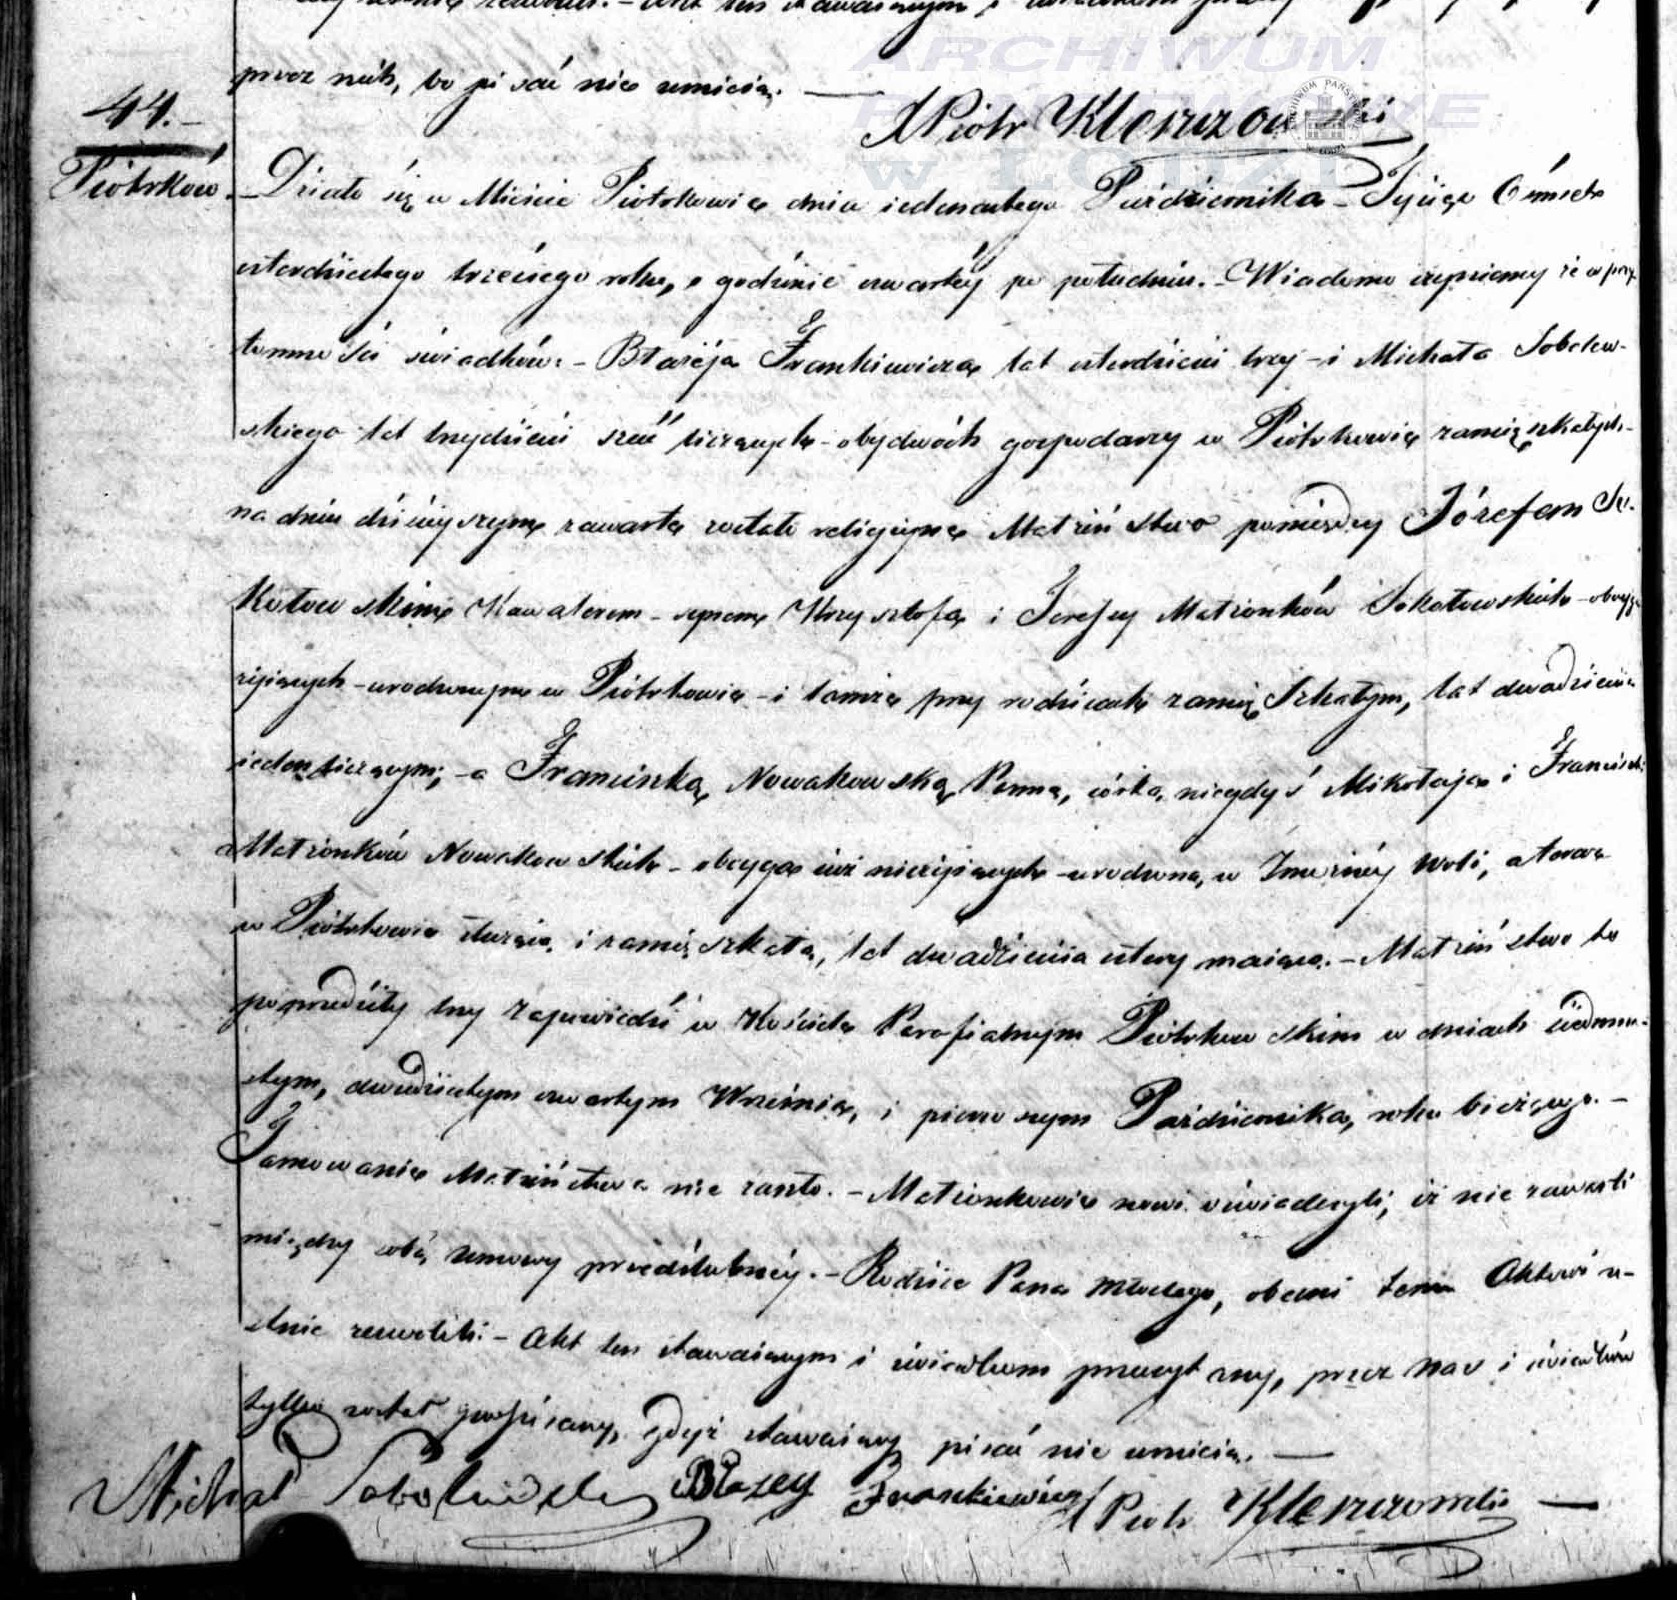 przez nich, bo pisać nie umieią. —
ARCHIWUM
PAŃSTWOWE
w ŁODZI
X Piotr Klenczowski
44. -
Piotrków.
Działo się w Mieście Piotrkowie dnia iedenastego Października - Tysiąc Ośmset
czterdziestego trzeciego roku, o godzinie czwartéy po południu. - Wiadomo czyniemy że w przy-
tomności świadków: - Błażeja Frankiewicza lat czterdzieści trzy - i Michała Sobolew-
skiego lat trzydzieści sześć liczących - obydwóch gospodarzy w Piotrkowie zamięszkałych -
na dniu dzisieyszym zawarte zostało religijne Małżeństwo pomiędzy Józefem So-
kołowskim Kawalerem - synem Krzysztofa i Teressy Małżonków Sokołowskich - oboyga
żyiących - urodzonym w Piotrkowie - i tamże przy rodzicach zamięszkałym, lat dwadzieścia
ieden liczącym; - a Franciszką Nowakowską Panną, córką niegdyś Mikołaja i Franciszki
Małżonków Nowakowskich - oboyga iuż nieżyiących - urodzoną w Woli, a teraz
w Piotrkowie służącą i zamięszkałą, lat dwadzieścia cztery maiącą. - Małżeństwo to
poprzedziły trzy zapowiedzi w Kościele Parafialnym Piotrkowskim w dniach siedmna-
stym, dwudziestym czwartym Września, i pierwszym Października, roku bieżącego. -
Tamowanie Małżeństwa nie zaszło. - Małżonkowie nowi oświadczyli, iż nie zawarli
między sobą umowy przedślubnéy. - Rodzice Pana Młodego, obecni temu Aktowi u-
stnie zezwolili. - Akt ten stawaiącym i świadkom przeczytany, przez nas i świadków
tylko został podpisany, gdyż stawaiący pisać nie umieią. —
Michał Sobolewski Błazey Frankiewicz X Piotr Klenczowski —